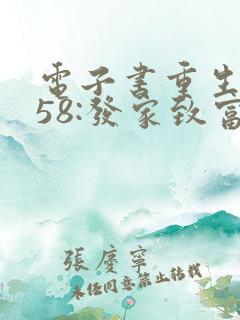 電子書重生
58:發家致富
張慶寧
未经同意禁止转载